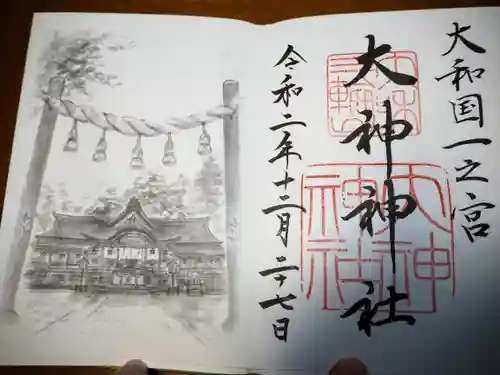 大和国一之宮
大神神社
令和二年十二月二十七日
三輪山
大神
神社